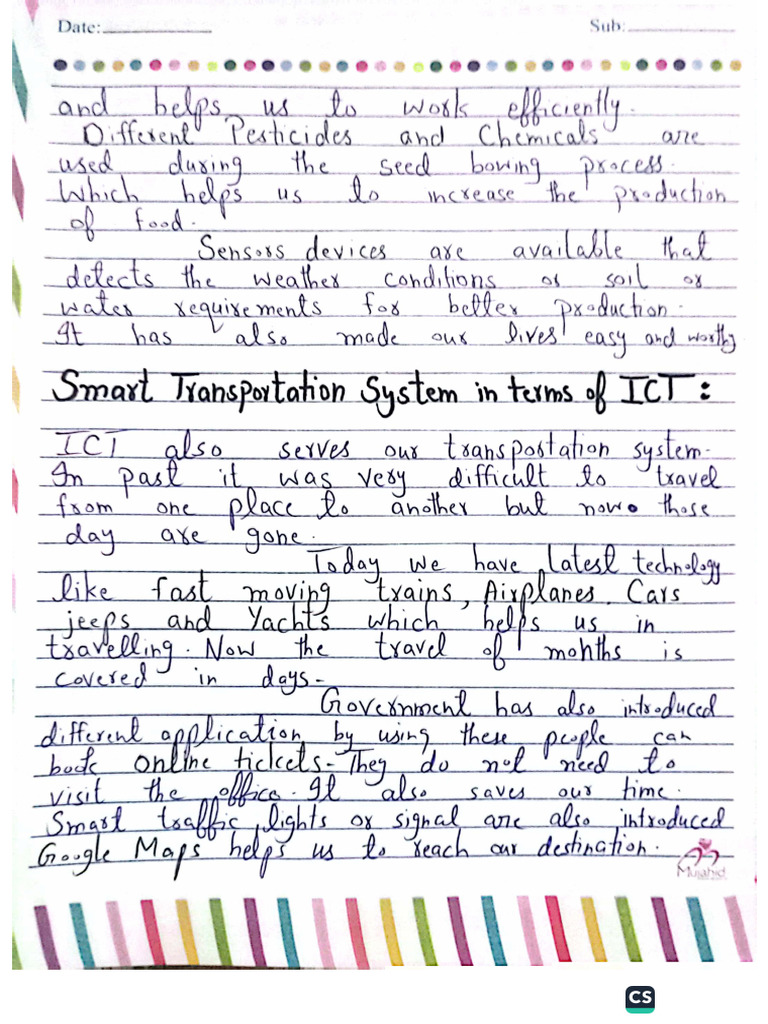 Date:
Sub:
and helps us to work efficiently.
Different Pesticides and Chemicals are
used during the seed bowing process.
Which helps us to increase the production
of food.
Sensors devices are available that
detects the weather conditions or soil or
water requirements for better production.
It has also made our lives easy and worthy
Smart Transportation System in terms of ICT:
ICT also serves our transportation system.
In past it was very difficult to travel
from one place to another but now those
day are gone.
Today we have latest technology
like fast moving trains, Airplanes, Cars
jeeps and Yachts which helps us in
travelling. Now the travel of months is
covered in days-
Government has also introduced
different application by using these people can
book online tickets- They do not need to
visit the office. It also saves our time.
Smart traffic lights or signal are also introduced
Google Maps helps us to reach our destination.
Mujahid
CS